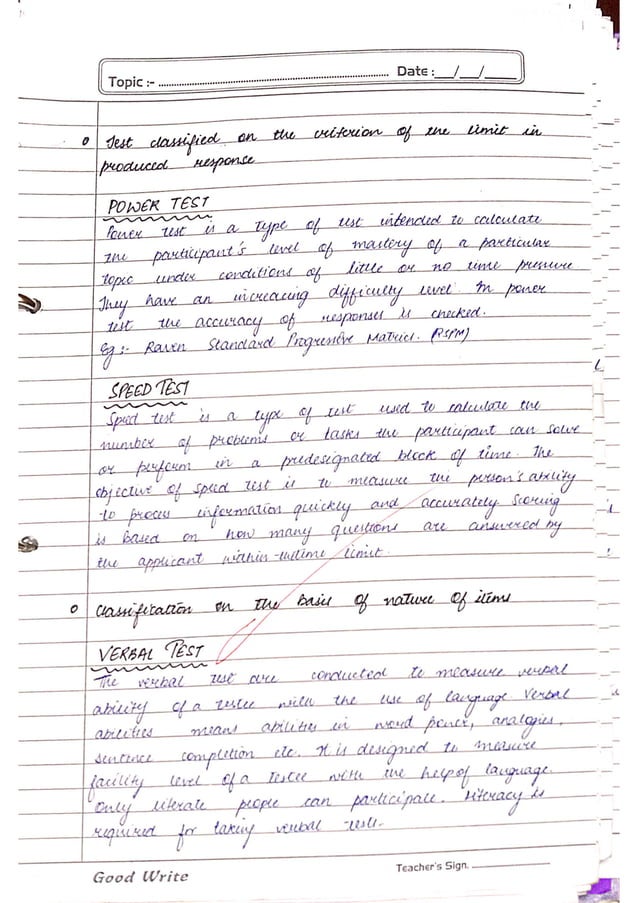 Topic :- Date :__/__/____
o Test classified on the criterion of the limit in
produced response
POWER TEST
Power test is a type of test intended to calculate
the participant's level of mastery of a particular
topic under conditions of little or no time pressure
They have an increasing difficulty level. In power
test the accuracy of responses is checked.
Eg :- Raven Standard Progressive Matrics. (RSPM)
SPEED TEST
Speed test is a type of test used to calculate the
number of problems or tasks the participant can solve
or perform in a predesignated block of time. The
objective of speed test is to measure the person's ability
to process information quickly and accurately Scoring
is based on how many questions are answered by
the applicant within limit.
o Classification on the basis of nature of items
VERBAL TEST
The verbal test are conducted to measure verbal
ability of a testee with the use of language Verbal
abilities means abilities in word power, analogies,
sentence completion etc. It is designed to measure
facility level of a testee with the help of language.
only literate people can participate. Literacy is
required for taking verbal tests.
Good Write
Teacher's Sign.